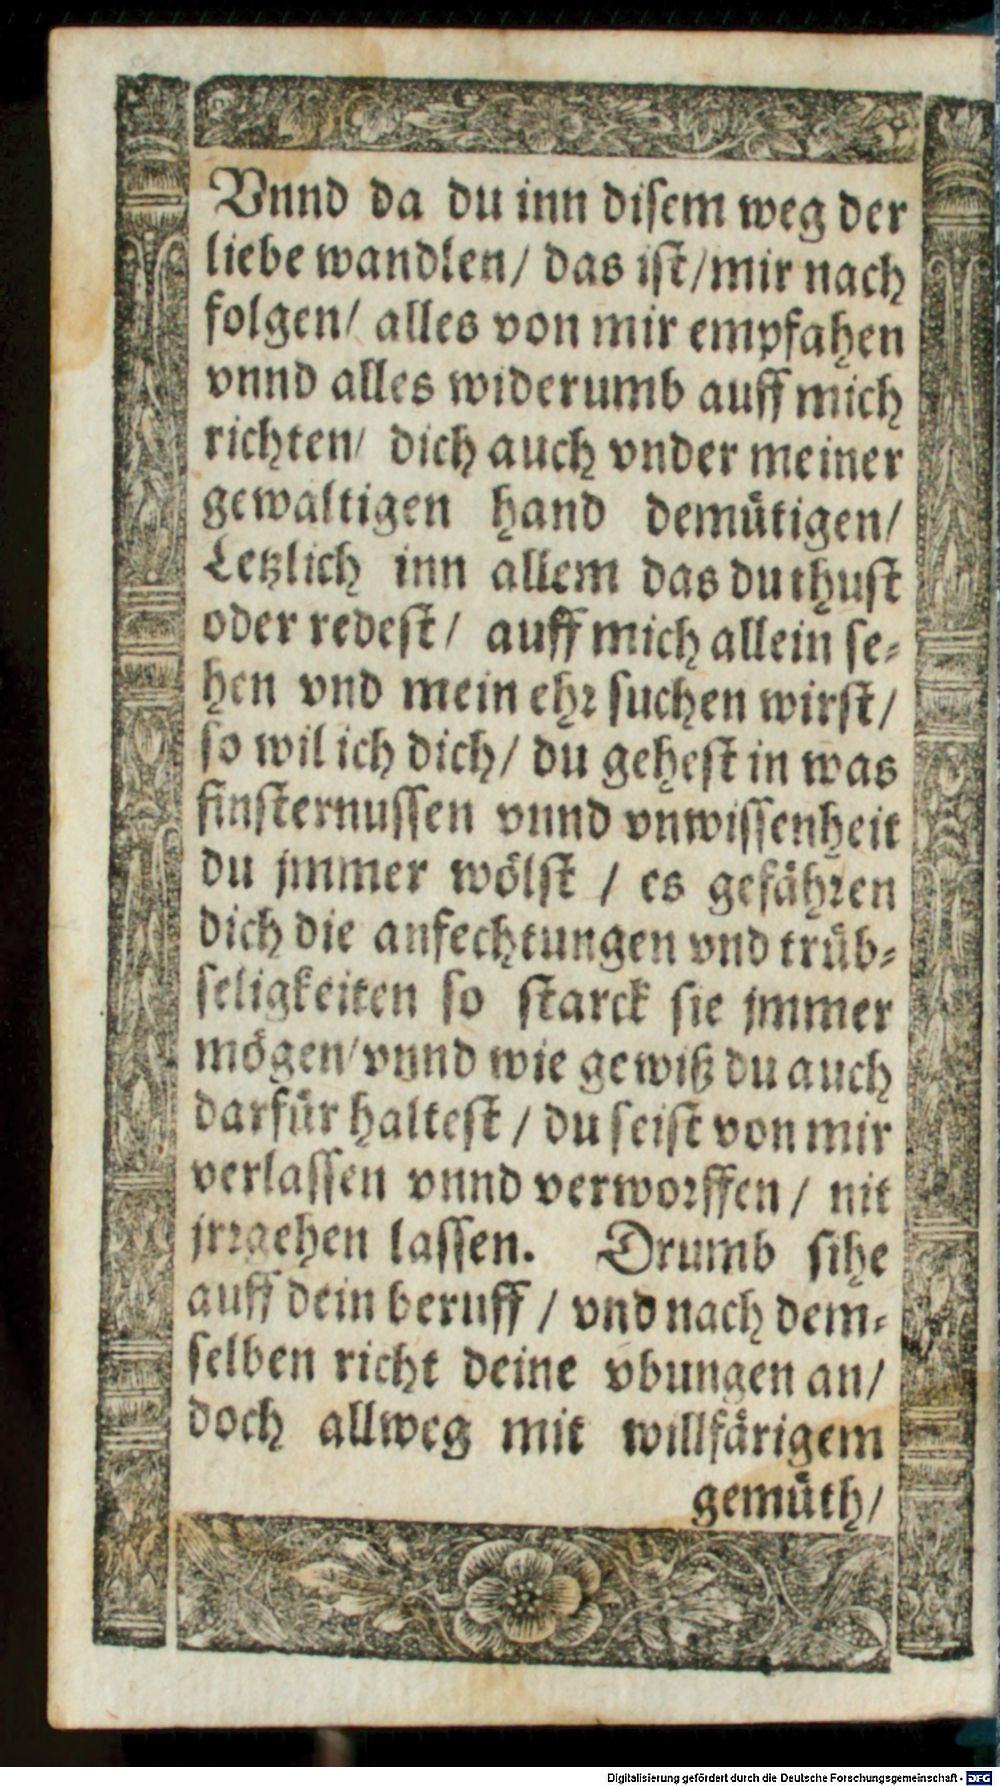 Vnnd da du inn disem weg der
liebe wandlen/ das ist/mir nach
folgen/ alles von mir empfahen
vnnd alles widerumb auff mich
richten/ dich auch vnder meiner
gewaltigen hand demütigen/
Letzlich inn allem das du thust
oder redest/ auff mich allein se-
hen vnd mein ehr suchen wirst/
so wil ich dich/ du gehest in was
finsternussen vnnd vnwissenheit
du jmmer wölst / es gefähren
dich die anfechtungen vnd trüb-
seligkeiten so starck sie jmmer
mögen/vnnd wie gewiß du auch
darfür haltest / du seist von mir
verlassen vnnd verworffen/ nit
jrrgehen lassen. Drumb sihe
auff dein beruff / vnd nach dem-
selben richt deine vbungen an/
doch allweg mit willfärigem
gemüth/
Digitalisierung gefördert durch die Deutsche Forschungsgemeinschaft - DFG